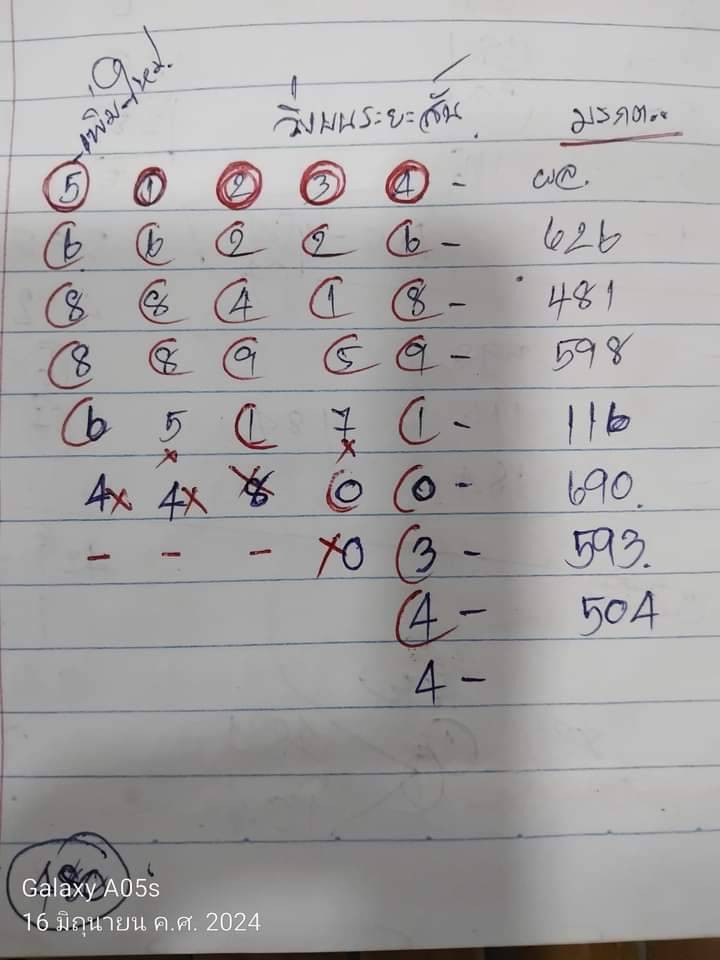 เพิ่ม
วิ่งบนระยะสั้น
มรกต..
5 1 2 3 4 - ผล.
6 6 2 2 6 - 626
8 8 4 1 8 - 481
8 8 9 5 9 - 598
6 5 1 7 1 - 116
x x
4x 4x 8 0 0 - 690.
- - - x0 3 - 593.
4 - 504
4 -
Galaxy A05s
16 มิถุนายน ค.ศ. 2024